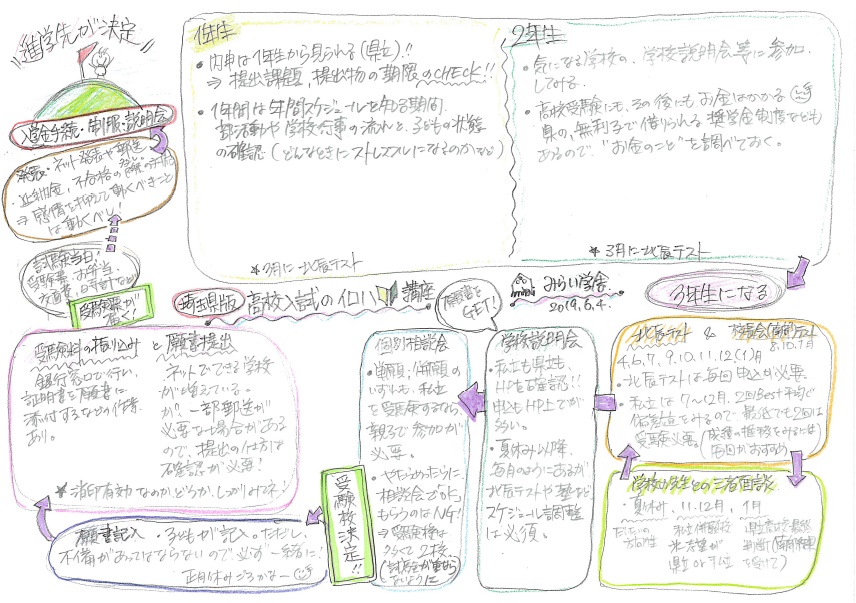 進学先が決定
入学手続・制服・説明会
発表・ネット発表や郵送
⇒感情を抑えて動くべきこと
は動くべし!
試験当日!
受験票、お弁当、
受験票が
届く!
1年生
・内申は1年生から見られる(県立)!!
⇒提出課題、提出物の期限のCHECK!!
・1年間は年間スケジュールを知る期間。
部活動や学校行事の流れと、子どもの状態
の確認(どんなときにストレスフルになるのかなど)
★3月に北辰テスト
2年生
・気になる学校の、学校説明会等に参加
してみる。
・高校受験にも、その後にもお金はかかる
県の、無利子で借りられる奨学金制度なども
あるので、"お金のこと"を調べておく。
★3月に北辰テスト
埼玉県版 高校入試のイロハ 講座
みらい学舎
2019.6.4.
3年生になる
北辰テスト &
4.6.7.9.10.11.12(1)月
8.10.1月
・北辰テストは毎回申込が必要。
・私立は7〜12月、2回Best平均で
偏差値をみるので最低でも2回は
受験必要。(成績の推移をみるには
毎回がおすすめ)
学校の先生との三者面談
・夏休み、11.12月、1月
だいたいの
方向性
私立併願校
県立or私立
願書を
GET!
学校説明会
・私立も県立も、
HPを確認!!
申込もHP上でが
多い。
・夏休み以降、
毎月のようにあるが
北辰テストや塾など
スケジュール調整
は必須。
個別相談会
・単願、併願の
いずれも、私立
を受験するなら、
親子で参加が
必要。
・やたらめったらに
相談会で〇を
もらうのはNG!
⇒受験校は
多くて2校
(試験が重なら
ないように
受験校決定!!
願書記入・子どもが記入。ただし、
不備があってはならないので必ず一緒に!
正月休みごろかなー
受験料の振り込み と 願書提出
銀行窓口で行い、
証明書を願書に
添付するなどの作業
あり。
ネットでできる学校
が増えている
が?一部郵送が
必要な場合がある
ので、提出の仕方は
確認が必要!
★消印有効なのかどうか、しっかりみてネ!